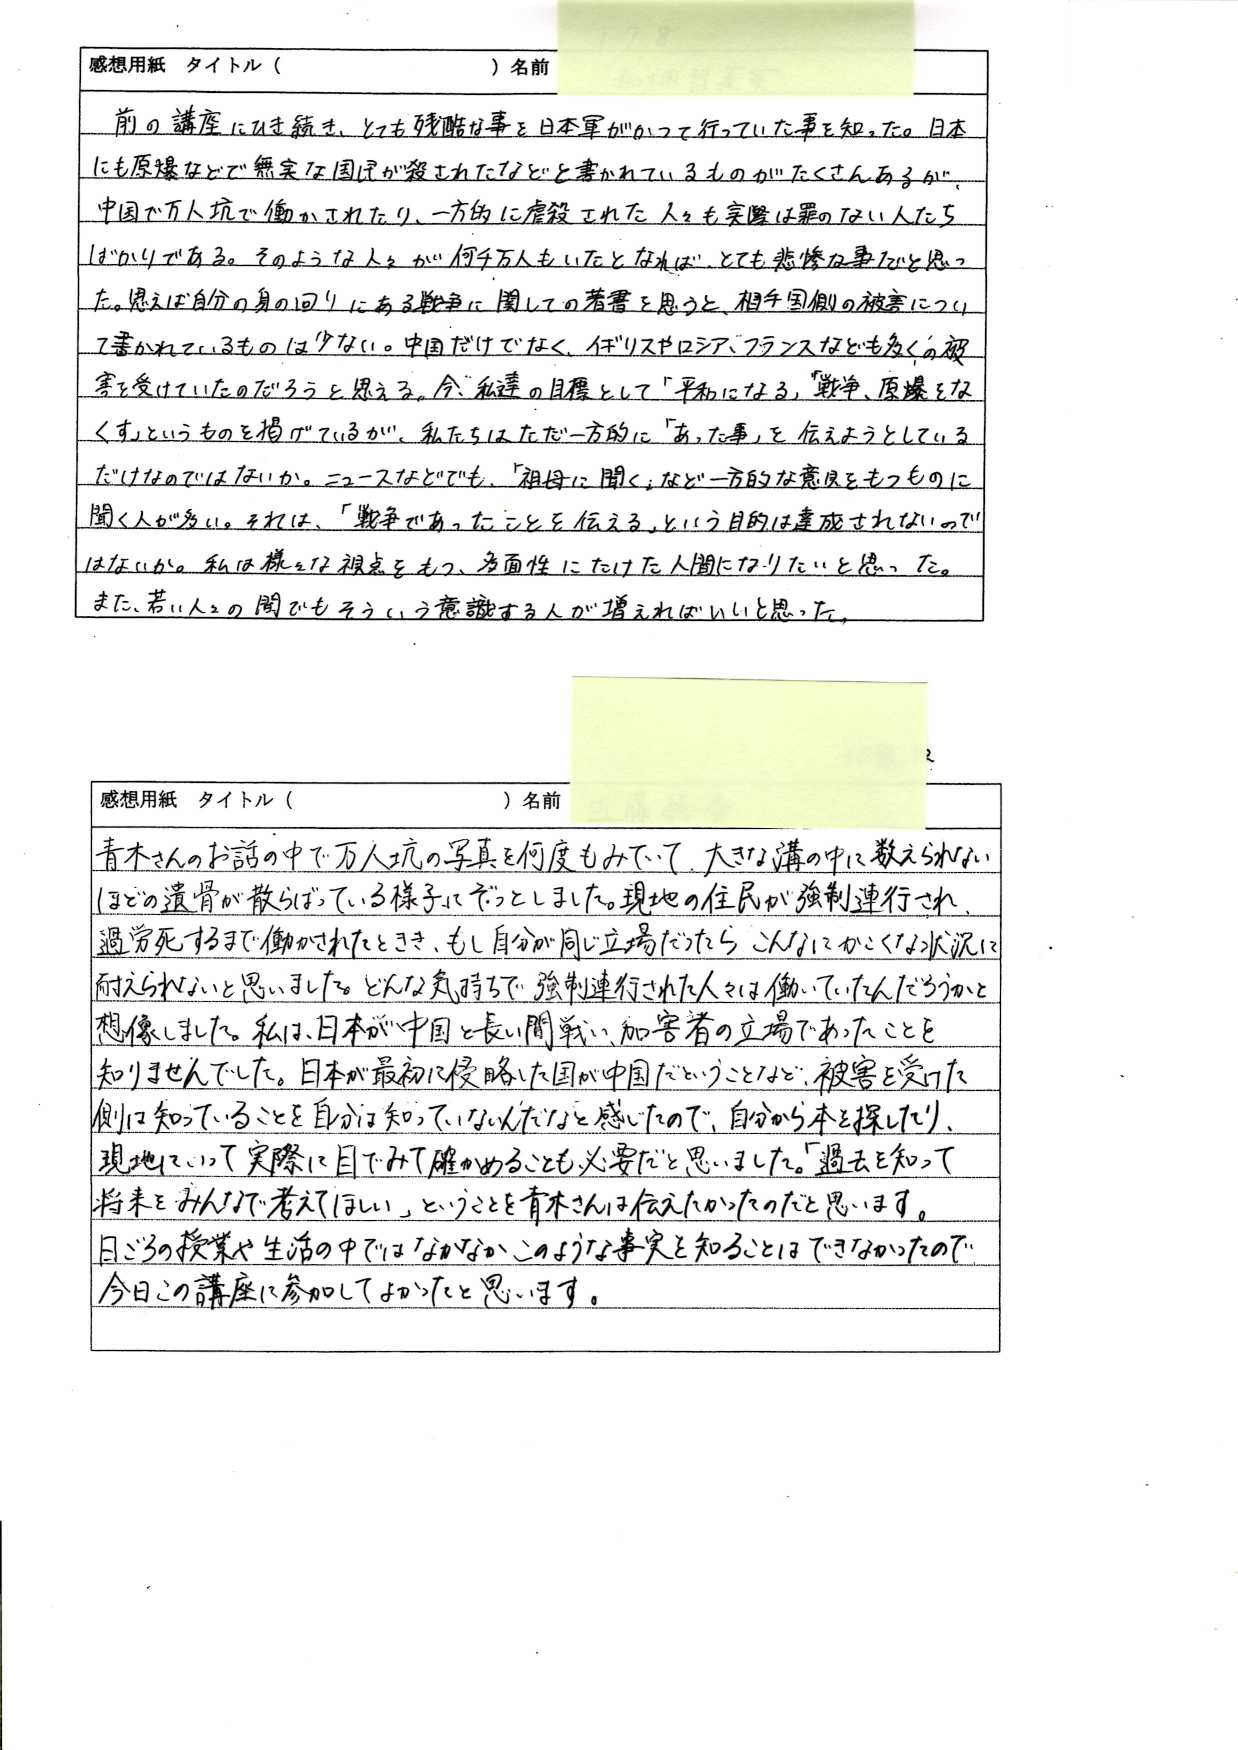 感想用紙 タイトル（ ）名前
前の講座にひき続き、とても残酷な事を日本軍がかつて行っていた事を知った。日本
にも原爆などで無実な国民が殺されたなどと書かれているものがたくさんあるが、
中国で万人坑で働かされたり、一方的に虐殺された人々も実際は罪のない人たち
ばかりである。そのような人々が何千万人もいたとなれば、とても悲惨な事だと思っ
た。思えば自分の身の回りにある戦争に関しての著書を思うと、相手国側の被害につい
て書かれているものは少ない。中国だけでなく、イギリスやロシア、フランスなども多くの被
害を受けていたのだろうと思える。今、私達の目標として「平和になる」「戦争、原爆をな
くす」というものを掲げているが、私たちはただ一方的に「あった事」を伝えようとしている
だけなのではないか。ニュースなどでも、「祖母に聞く」など一方的な意見をもつものに
聞く人が多い。それは、「戦争であったことを伝える」という目的は達成されないので
はないか。私は様々な視点をもつ、多面性にたけた人間になりたいと思った。
また、若い人々の間でもそういう意識する人が増えればいいと思った。
感想用紙 タイトル（ ）名前
青木さんのお話の中で万人坑の写真を何度もみていて、大きな溝の中に数えられない
ほどの遺骨が散らばっている様子にぞっとしました。現地の住民が強制連行され、
過労死するまで働かされたときき、もし自分が同じ立場だったらこんなにかこくな状況に
耐えられないと思いました。どんな気持ちで強制連行された人々は働いていたんだろうかと
想像しました。私は、日本が中国と長い間戦い、加害者の立場であったことを
知りませんでした。日本が最初に侵略した国が中国だということなど、被害を受けた
側は知っていることを自分は知っていないんだなと感じたので、自分から本を探したり、
現地にいって実際に目でみて確かめることも必要だと思いました。「過去を知って
将来をみんなで考えてほしい」ということを青木さんは伝えたかったのだと思います。
日ごろの授業や生活の中ではなかなかこのような事実を知ることはできなかったので
今日この講座に参加してよかったと思います。